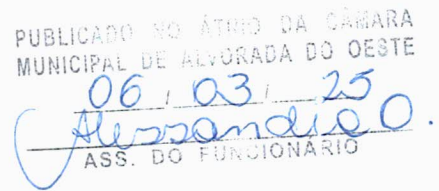 PUBLICADO NO ÁTRIO DA CÂMARA
MUNICIPAL DE ALVORADA DO OESTE
06 / 03 / 25
Alessandra O.
ASS. DO FUNCIONÁRIO